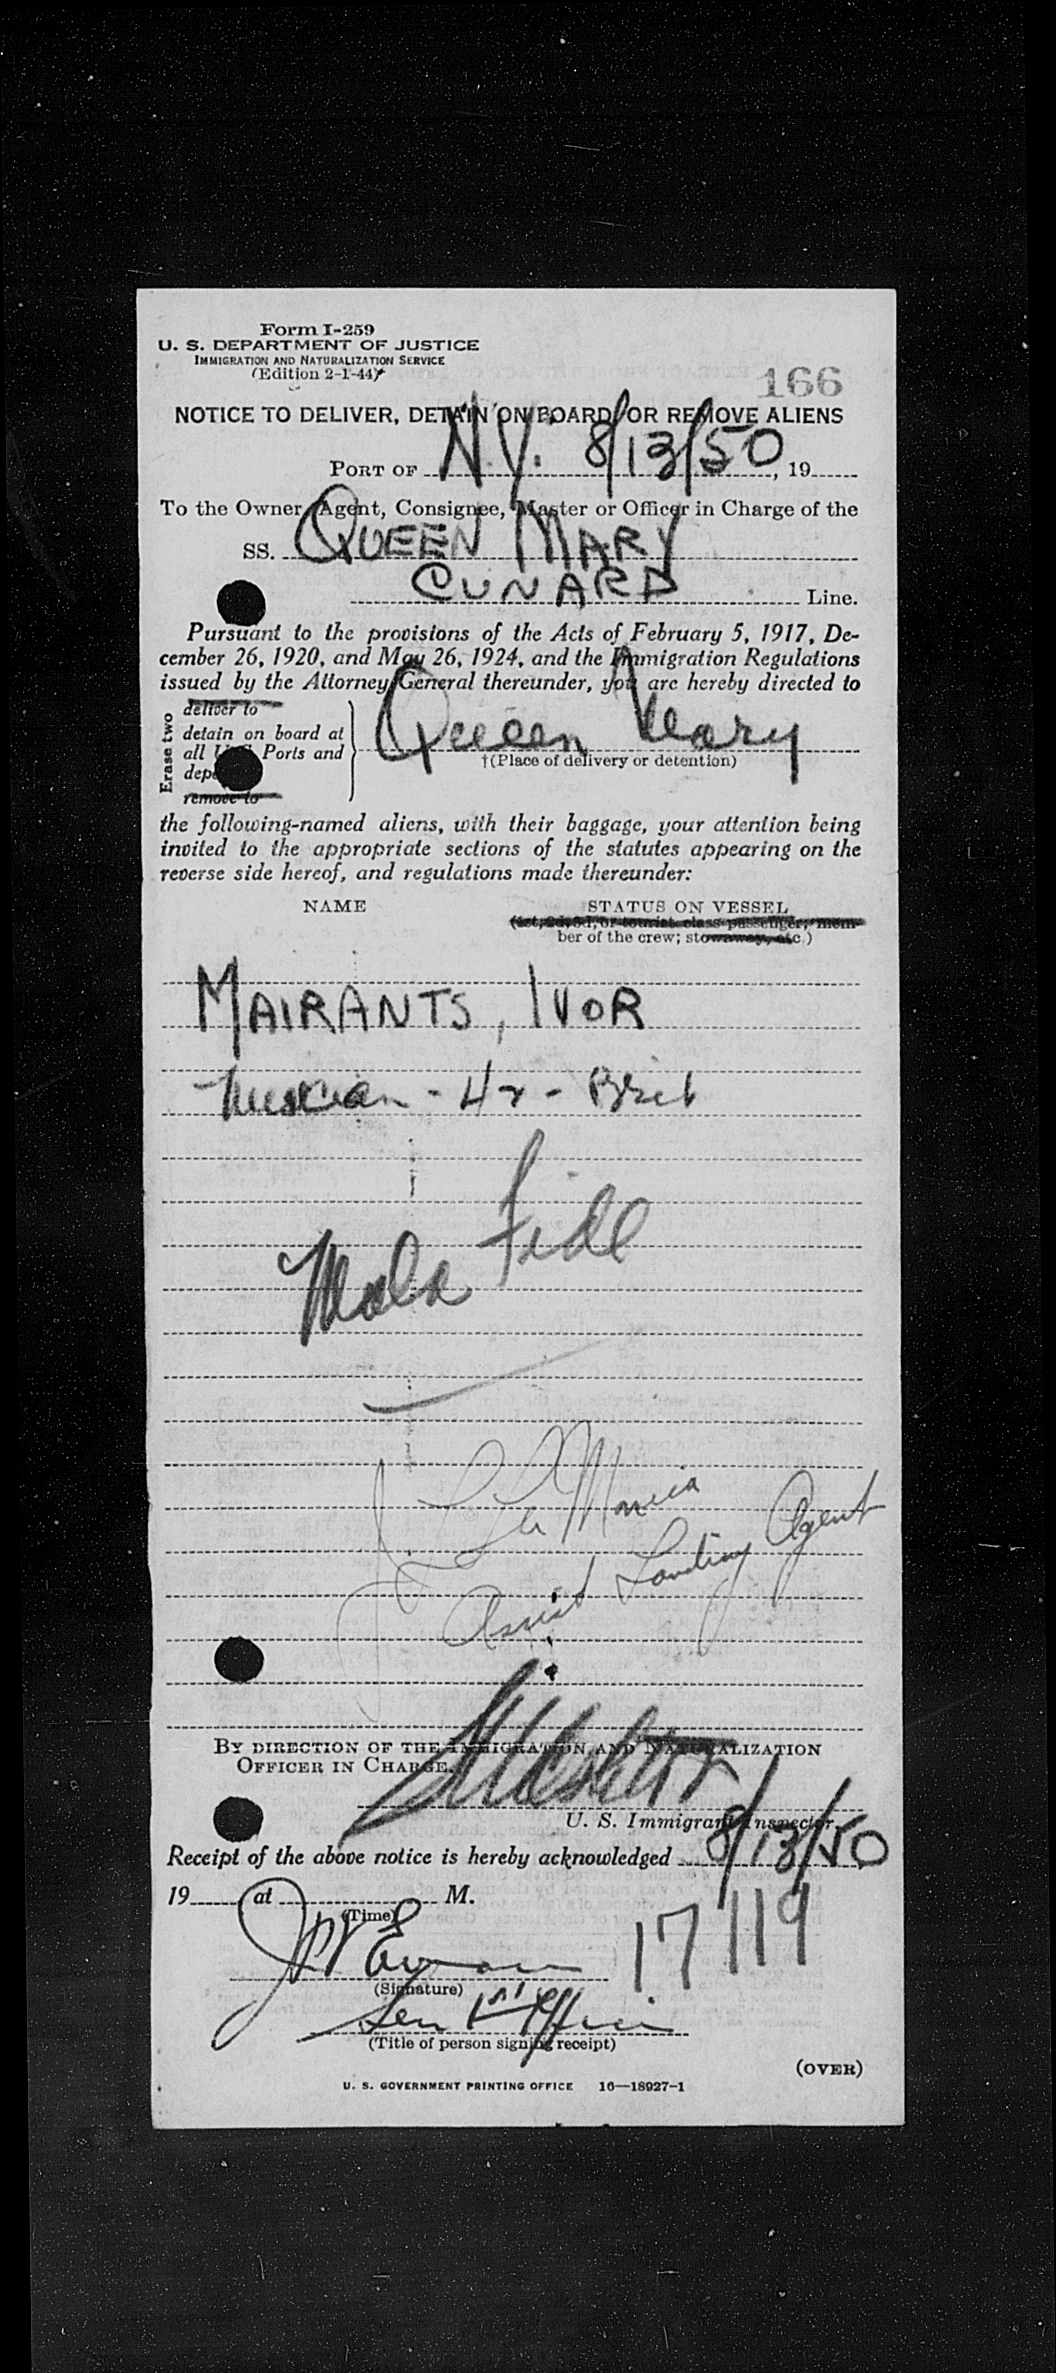 Form I-259
U. S. DEPARTMENT OF JUSTICE
IMMIGRATION AND NATURALIZATION SERVICE
(Edition 2-1-44)
166
NOTICE TO DELIVER, DETAIN ON BOARD, OR REMOVE ALIENS
PORT OF N.Y. 8/13/50, 19
To the Owner, Agent, Consignee, Master or Officer in Charge of the
SS. QUEEN MARY
CUNARD Line.
Pursuant to the provisions of the Acts of February 5, 1917, De-
cember 26, 1920, and May 26, 1924, and the Immigration Regulations
issued by the Attorney General thereunder, you are hereby directed to
Erase two
deliver to
detain on board at
all U.S. Ports and
remove to
Queen Mary
†(Place of delivery or detention)
the following-named aliens, with their baggage, your attention being
invited to the appropriate sections of the statutes appearing on the
reverse side hereof, and regulations made thereunder:
NAME STATUS ON VESSEL
(1st, 2d, 3d, or tourist class passenger; mem-
ber of the crew; stowaway, etc.)
MAIRANTS, IVOR
Musician - 42 - Brit
Mala Fide
Assist Landing Agent
BY DIRECTION OF THE IMMIGRATION AND NATURALIZATION
OFFICER IN CHARGE.
U. S. Immigrant Inspector.
Receipt of the above notice is hereby acknowledged 8/13/50
19 at M.
(Time)
17119
(Signature)
Sen 1st Officer
(Title of person signing receipt)
(OVER)
U. S. GOVERNMENT PRINTING OFFICE 16—18927-1